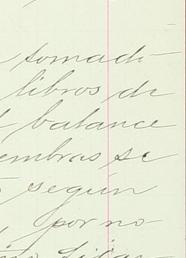 tomado
libros de
balance
embras se
según
, por no